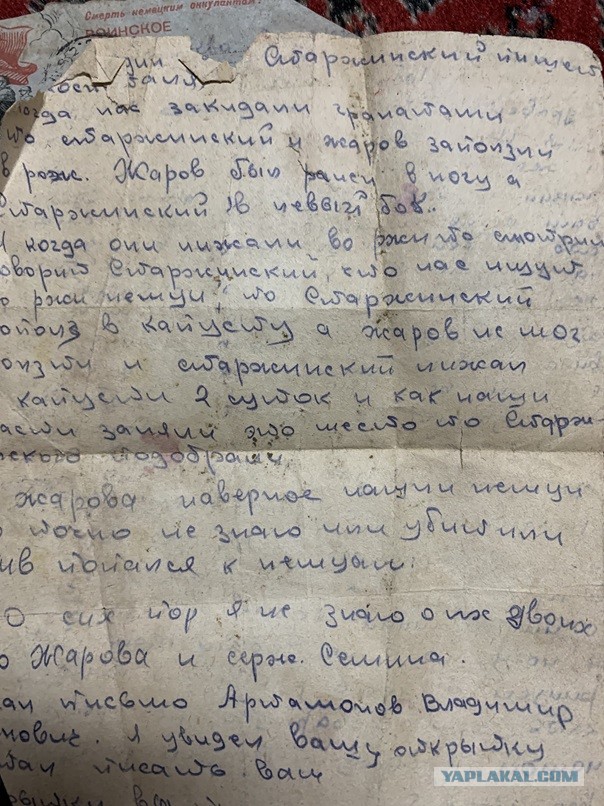 Смерть немецким оккупантам!
ВОИНСКОЕ
Старжинский пишет
огда нас закидали гранатами
то старжинский и жаров заползли
в рож. Жаров был ранен в ногу а
Старжинский в невыгй бок.
И когда они лижали во ржи то смотрин
оворит Старжинский, что нас ищут
о ржи немци, то Старжинский
ополз в капусту а жаров не мог
олзти и старжинский лижал
капусти 2 суток и как наши
асти заняли это место то Старж-
нского подобрали
жарова наверное нашли немци
о точно не знаю или убит или
ив попался к немцам.
О сих пор я не знаю о их двоих
о Жарова и серж. Семина.
сал письмо Артамонов Владимир
нович. Я увидел вашу открытку
писать вам
YAPLAKAL.COM